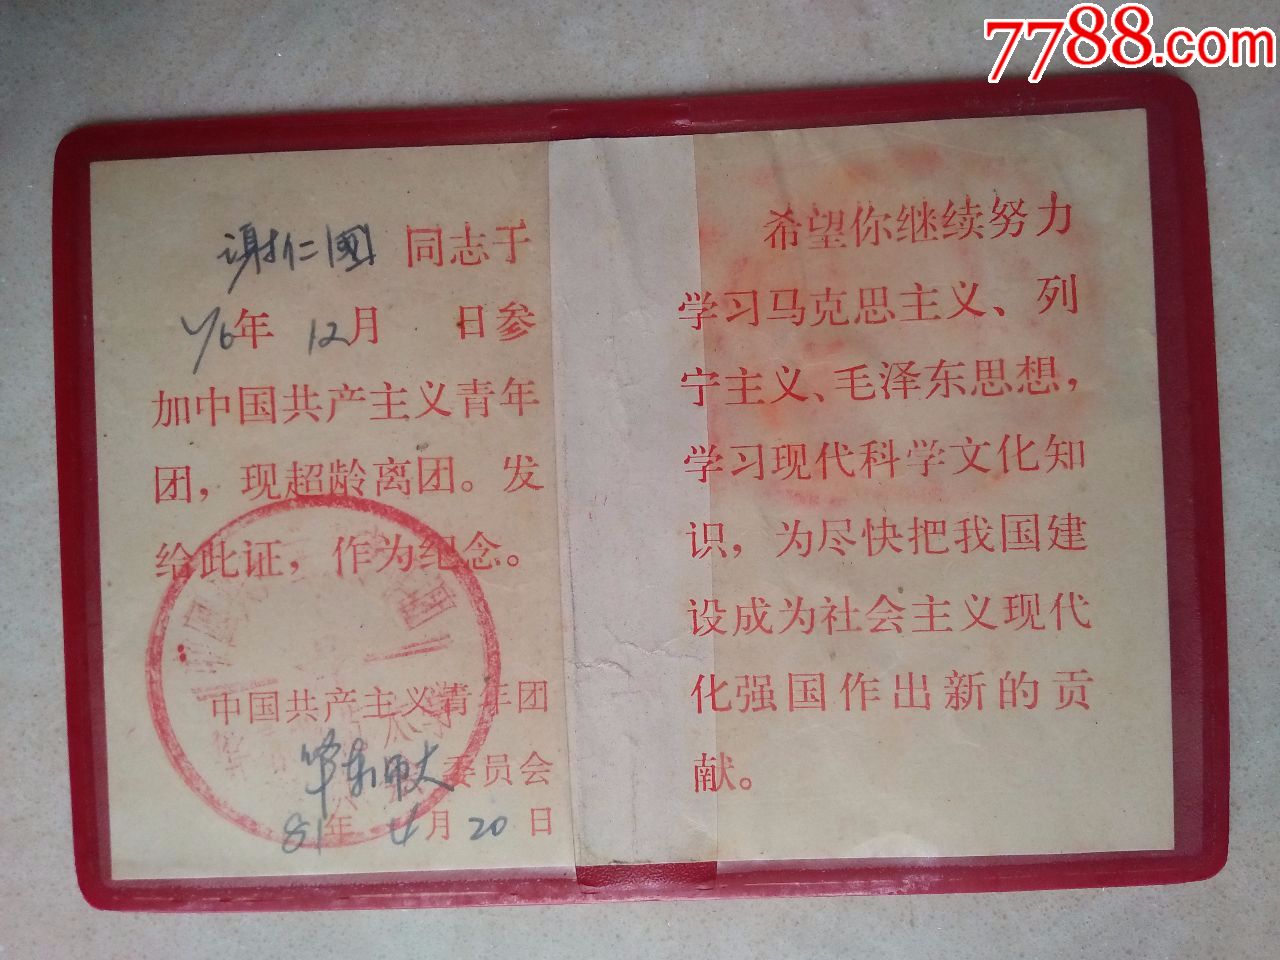 7788.com
谢仁國 同志于
76年 12月 日参
加中国共产主义青年
团，现超龄离团。发
给此证，作为纪念。
中国共产主义青年团
华东师大委员会
81年 4月 20日
希望你继续努力
学习马克思主义、列
宁主义、毛泽东思想，
学习现代科学文化知
识，为尽快把我国建
设成为社会主义现代
化强国作出新的贡
献。